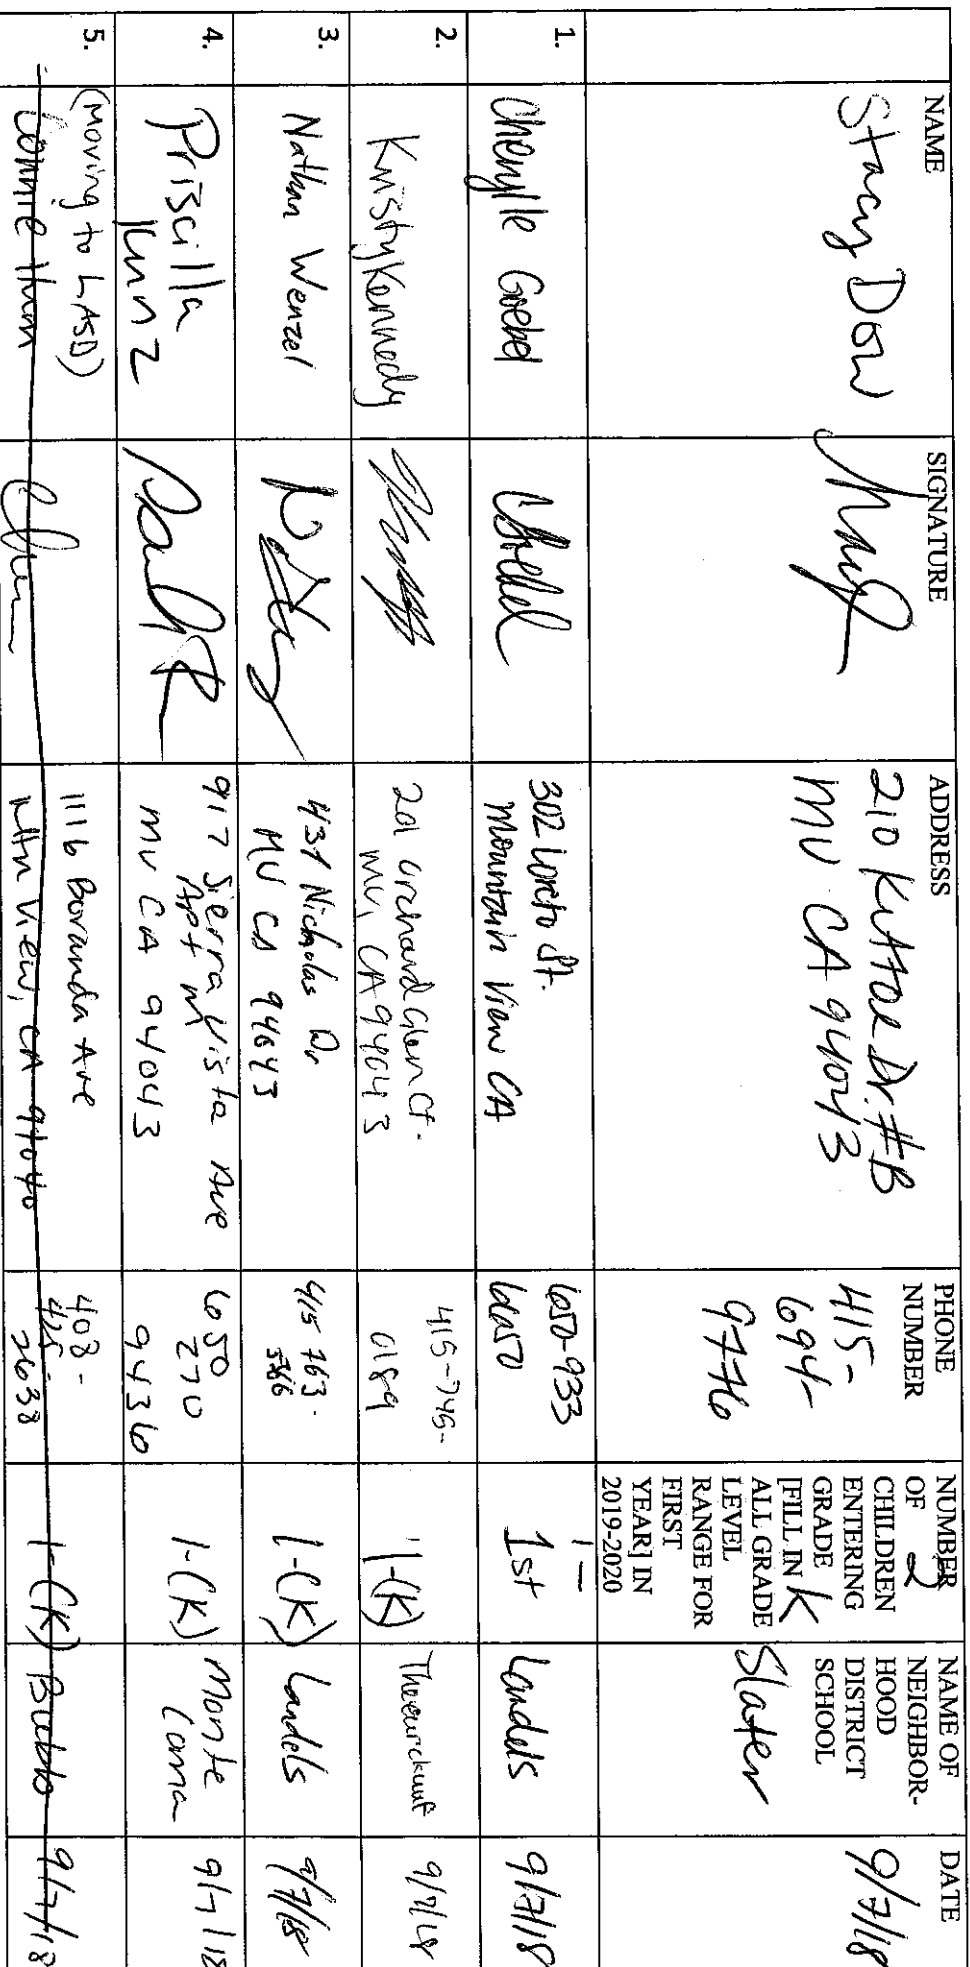 NAME
SIGNATURE
ADDRESS
PHONE
NUMBER
NUMBER
OF
CHILDREN
ENTERING
GRADE
[FILL IN
ALL GRADE
LEVEL
RANGE FOR
FIRST
YEAR] IN
2019-2020
NAME OF
NEIGHBOR-
HOOD
DISTRICT
SCHOOL
DATE
Stacy Dow
210 Kittoe Dr. #B
MV CA 94043
415-
694-
9776
2
K
Slater
9/7/18
1.
Cherylle Goebel
302 Loreto St.
Mountain View CA
650-933
1-
1st
Landels
9/7/18
2.
Kristy Kennedy
201 Orchard Glen Ct.
MV, CA 94043
415-745-
0189
1-(K)
9/7/18
3.
Nathan Wenzel
431 Nicholas Dr
MV CA 94043
415 763-
1-(K)
Landels
9/7/18
4.
Priscilla
Kunz
917 Sierra Vista Ave
Apt M
MV CA 94043
650
270
9436
1-(K)
Monte
Loma
9/7/18
5.
(moving to LASD)
Connie Hum
1116 Boranda Ave
Mtn View, CA 94040
408-
2638
1-(K)
Bubb
9/7/18